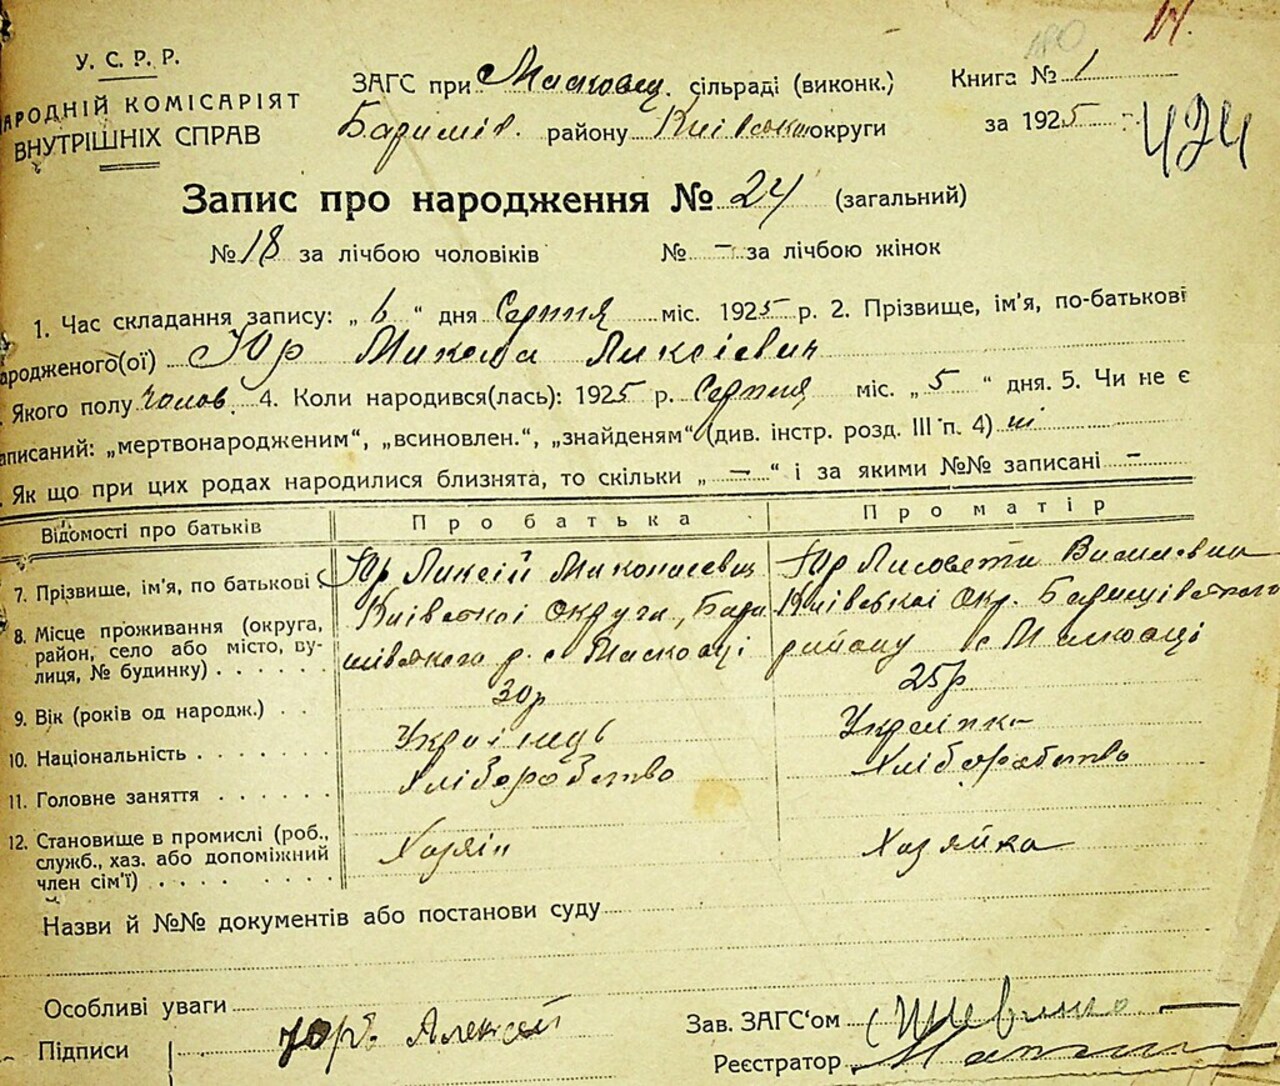 У. С. Р. Р.
АРОДНІЙ КОМІСАРІЯТ
ВНУТРІШНІХ СПРАВ
ЗАГС при Масковец. сільраді (виконк.)
Баришів. району Київської округи
Книга № 1
за 1925
424
Запис про народження № 24 (загальний)
№ 18 за лічбою чоловіків № – за лічбою жінок
1. Час складання запису: „ 6 “ дня Серпня міс. 1925 р. 2. Прізвище, ім'я, по-батькові
ародженого(ої) Юр Микола Ликсієвич
Якого полу чолов. 4. Коли народився(лась): 1925 р. Серпня міс. „ 5 “ дня. 5. Чи не є
аписаний: „мертвонародженим“, „всиновлен.“, „знайденям“ (див. інстр. розд. III п. 4) ні
Як що при цих родах народилися близнята, то скільки „ — “ і за якими №№ записані –
Відомості про батьків Про батька Про матір
7. Прізвище, ім'я, по батькові Юр Ликсій Миколаєвич Юр Лисовети Василевна
8. Місце проживання (округа, район, село або місто, вулиця, № будинку) Київської Округи, Баришівського р. с Масковці Київської Окр. Баришівського району с Масковці
9. Вік (років од народж.) 30р 25р
10. Національність Українець Українка
11. Головне заняття Хліборобство Хліборобство
12. Становище в промислі (роб., служб., хаз. або допоміжний член сім'ї) Хазяін Хазяйка
Назви й №№ документів або постанови суду
Особливі уваги
Підписи Юръ Алексей
Зав. ЗАГС‘ом
Реєстратор